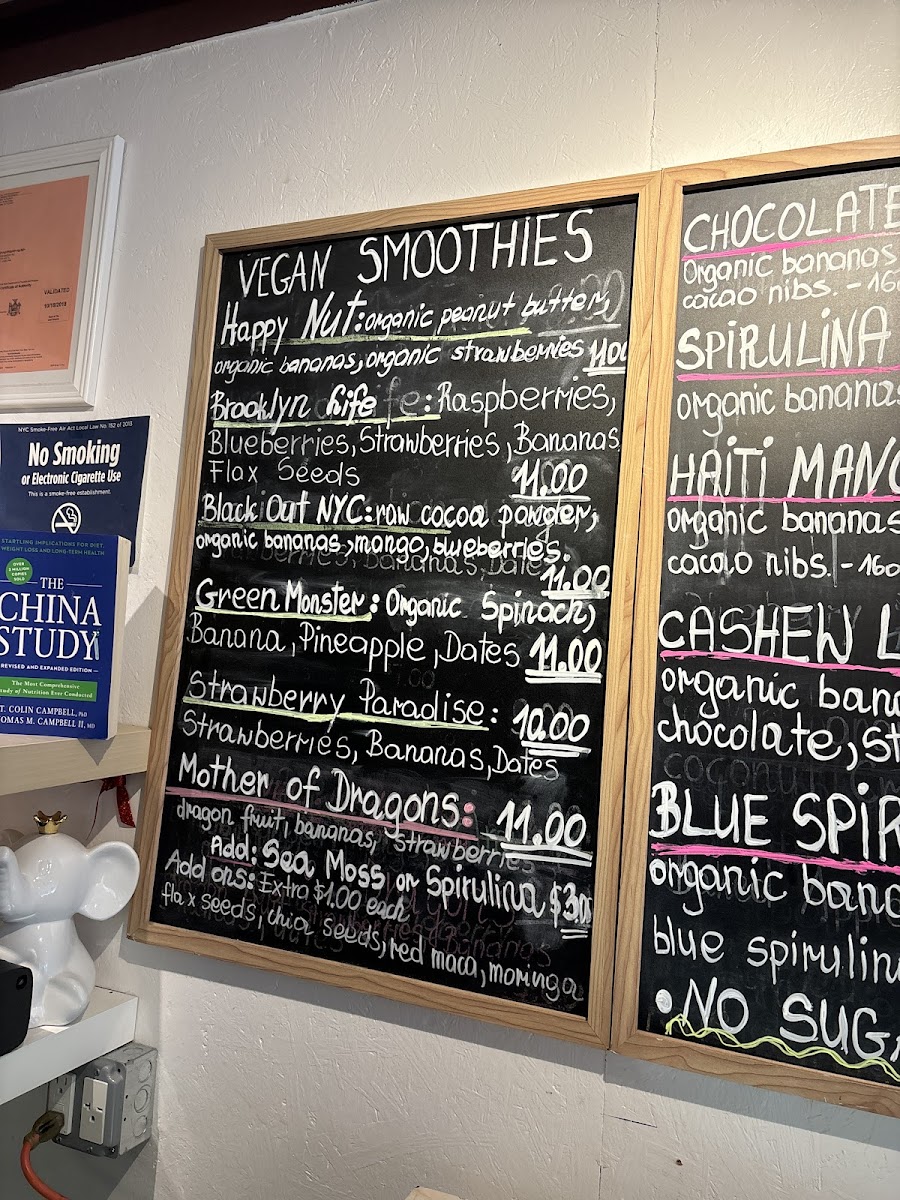 VALIDATED
NYC Smoke-Free Air Act Local Law No. 152 of 2013
No Smoking
or Electronic Cigarette Use
This is a smoke-free establishment.
STARTLING IMPLICATIONS FOR DIET,
WEIGHT LOSS AND LONG-TERM HEALTH
OVER
2 MILLION
COPIES
SOLD
THE
CHINA
STUDY
REVISED AND EXPANDED EDITION
The Most Comprehensive
Study of Nutrition Ever Conducted
T. COLIN CAMPBELL, PhD
THOMAS M. CAMPBELL II, MD
VEGAN SMOOTHiES
Happy Nut: organic peanut butter,
organic bananas, organic strawberries 11.00
Brooklyn Life: Raspberries,
Blueberries, Strawberries, Bananas
Flax Seeds 11.00
Black Out NYC: raw cocoa powder,
organic bananas, mango, blueberries.
11.00
Green Monster: Organic Spinach,
Banana, Pineapple, Dates 11.00
Strawberry Paradise: 10.00
Strawberries, Bananas, Dates
Mother of Dragons: 11.00
dragon fruit, bananas, strawberries
Add: Sea Moss or Spirulina $3.00
Add ons: Extra $1.00 each
flax seeds, chia seeds, red maca, moringa
CHOCOLATE
Organic bananas
cacao nibs. - 160
SPiRULiNA
organic bananas
HAiTi MANG
organic bananas
cacao nibs. - 160
CASHEW L
organic bana
chocolate, st
BLUE SPiR
organic bana
blue spirulin
• NO SUGA